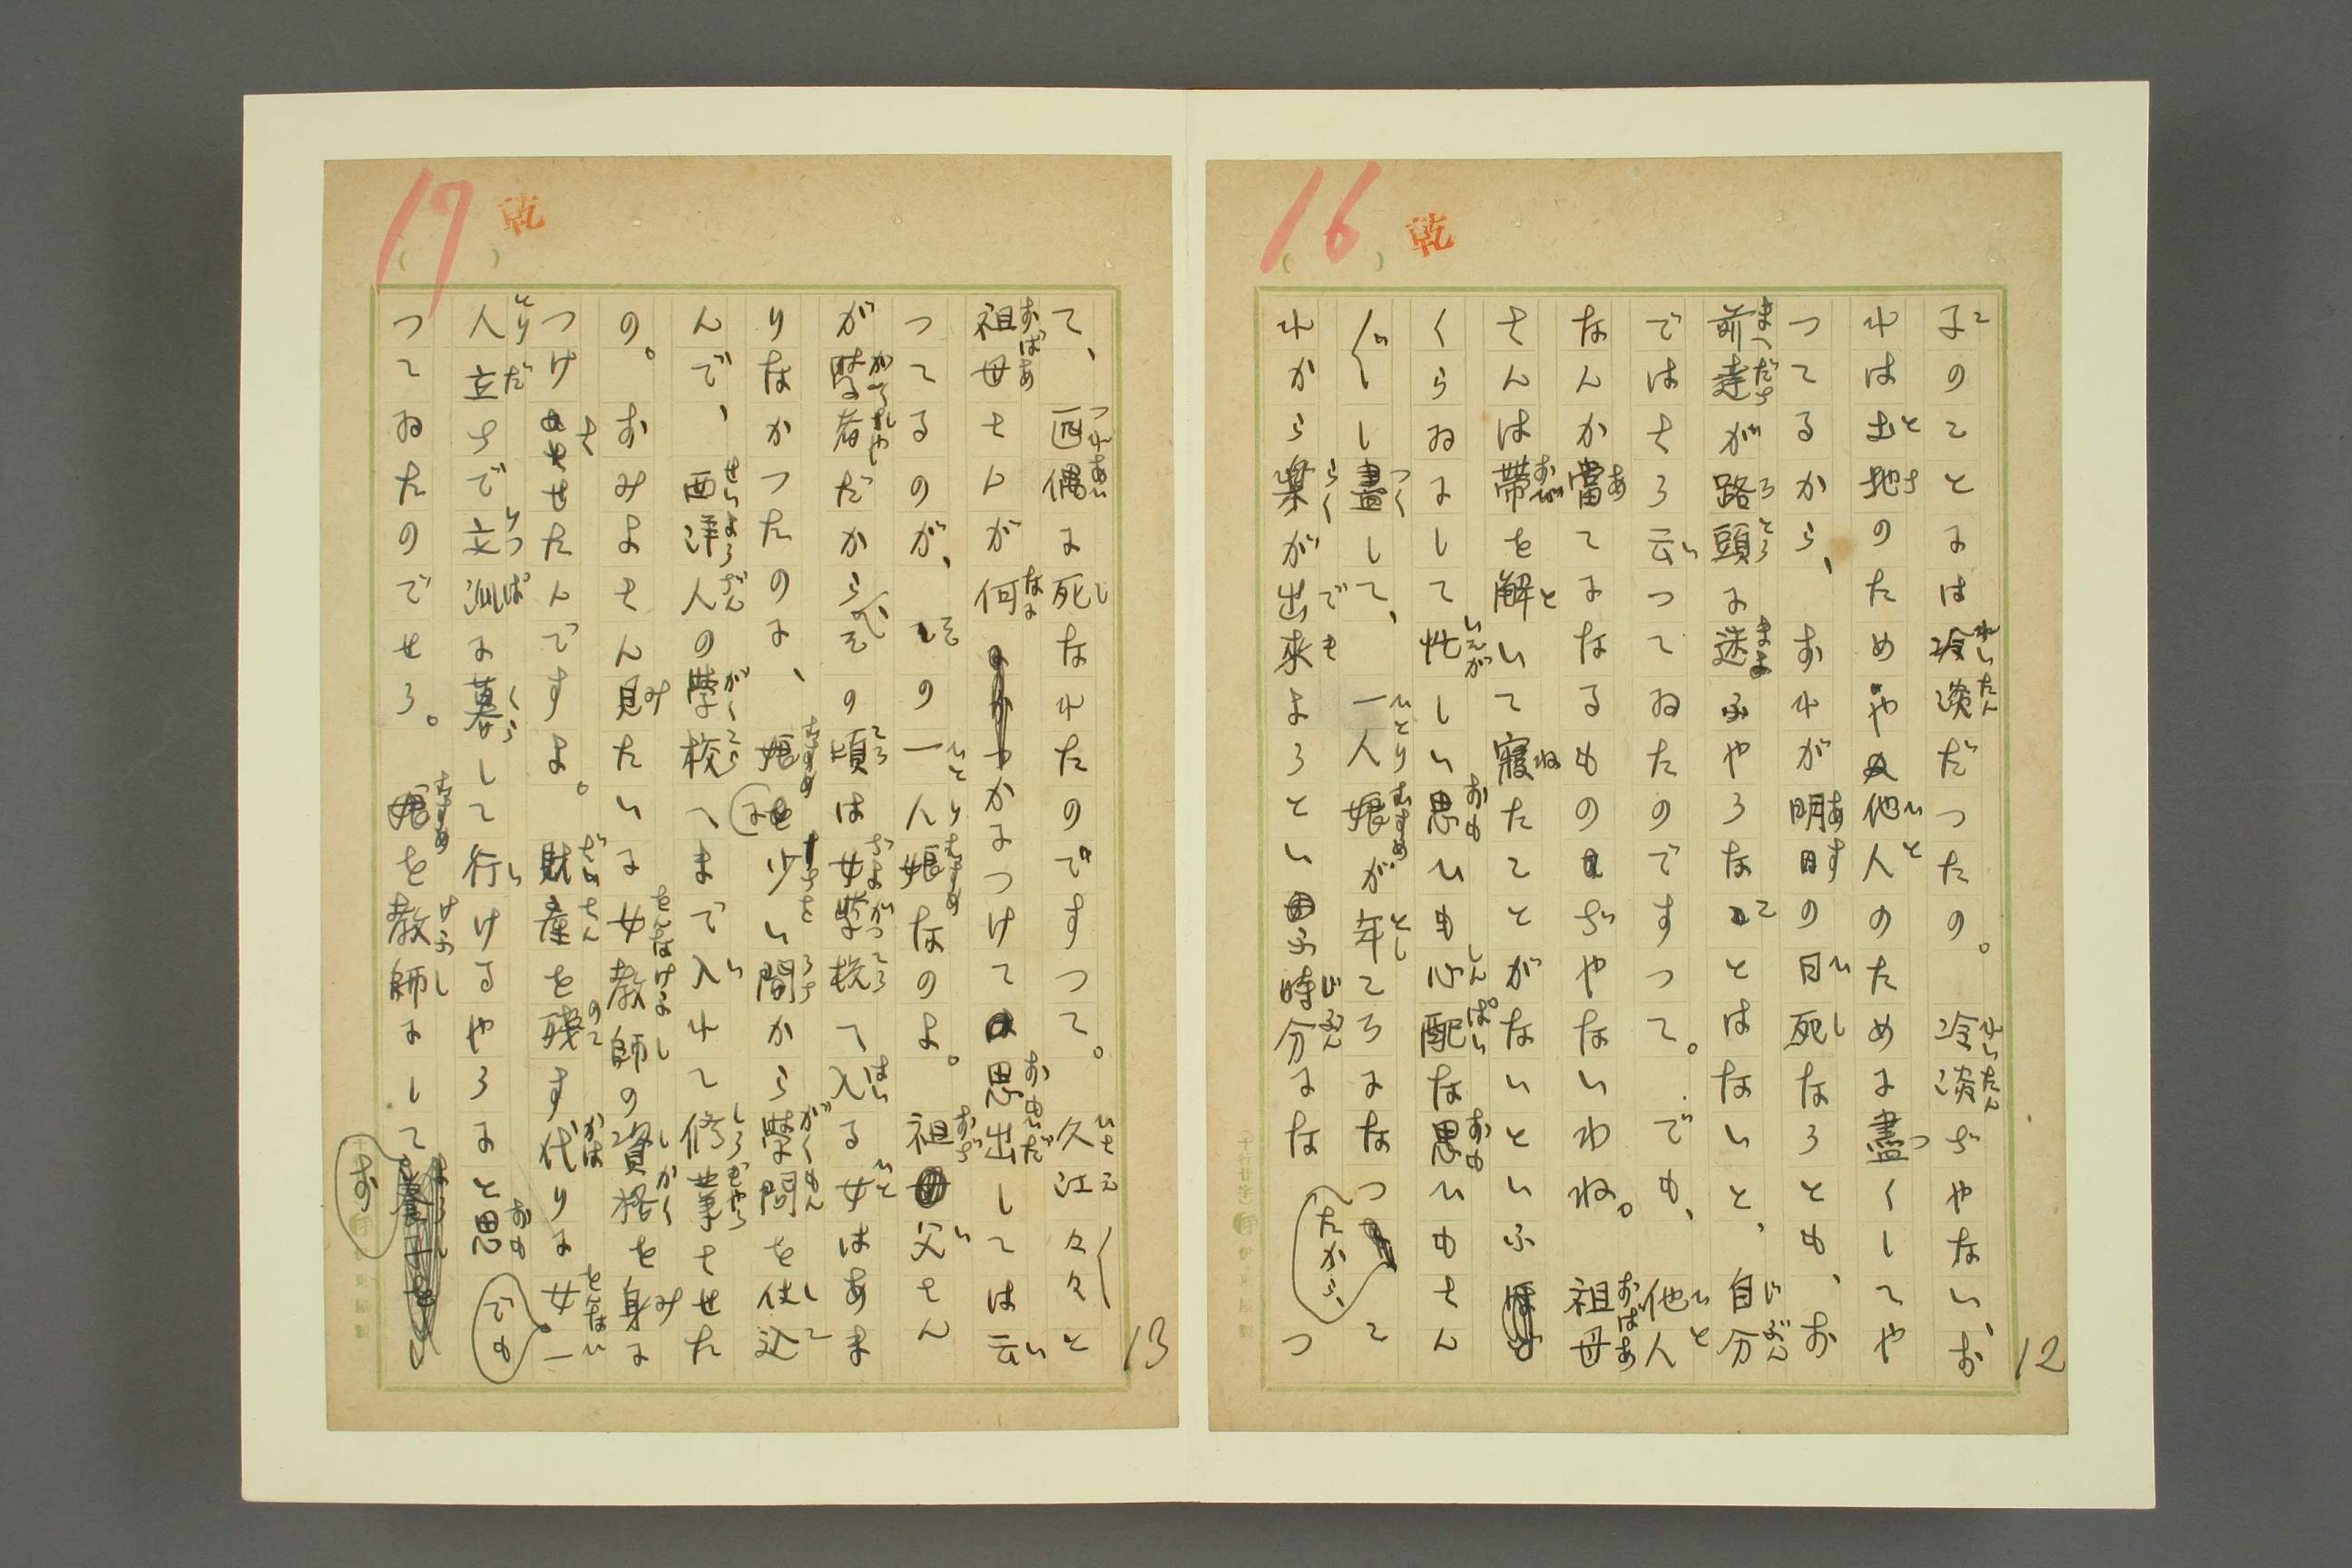 16
乾
12
子のことには冷淡だつたの。冷淡ぢやない、お
れは土地のためや他人のために盡くしてや
つてるから、おれが明日の日死なうとも、お
前達が路頭に迷ふやうなことはないと、自分
ではさう云つてゐたのですつて。でも、他人
なんか當てになるものぢやないわね。祖母
さんは帯を解いて寝たことがないといふ
くらゐにして忙しい思ひも心配な思ひもさん
〴〵し盡して、一人娘が年ごろになつたから、こ
れから楽が出来ようといふ時分にな
つ
17
乾
13
て、匹偶に死なれたのですつて。久江々々と
祖母さんが何かにつけて思出しては云
つてるのが、その一人娘なのよ。祖父さん
が學者だから、その頃は女學校へ入る女はあま
りなかつたのに、娘に少い間から學問を仕込
んで、西洋人の學校へまで入れて修業させた
の。おみよさん見たいに女教師の資格を身に
つけさせたんですよ。財産を残す代りに女一
人立ちで立派に暮して行けるやうにと思
つてゐたのでせう。でも娘を教師にして
お